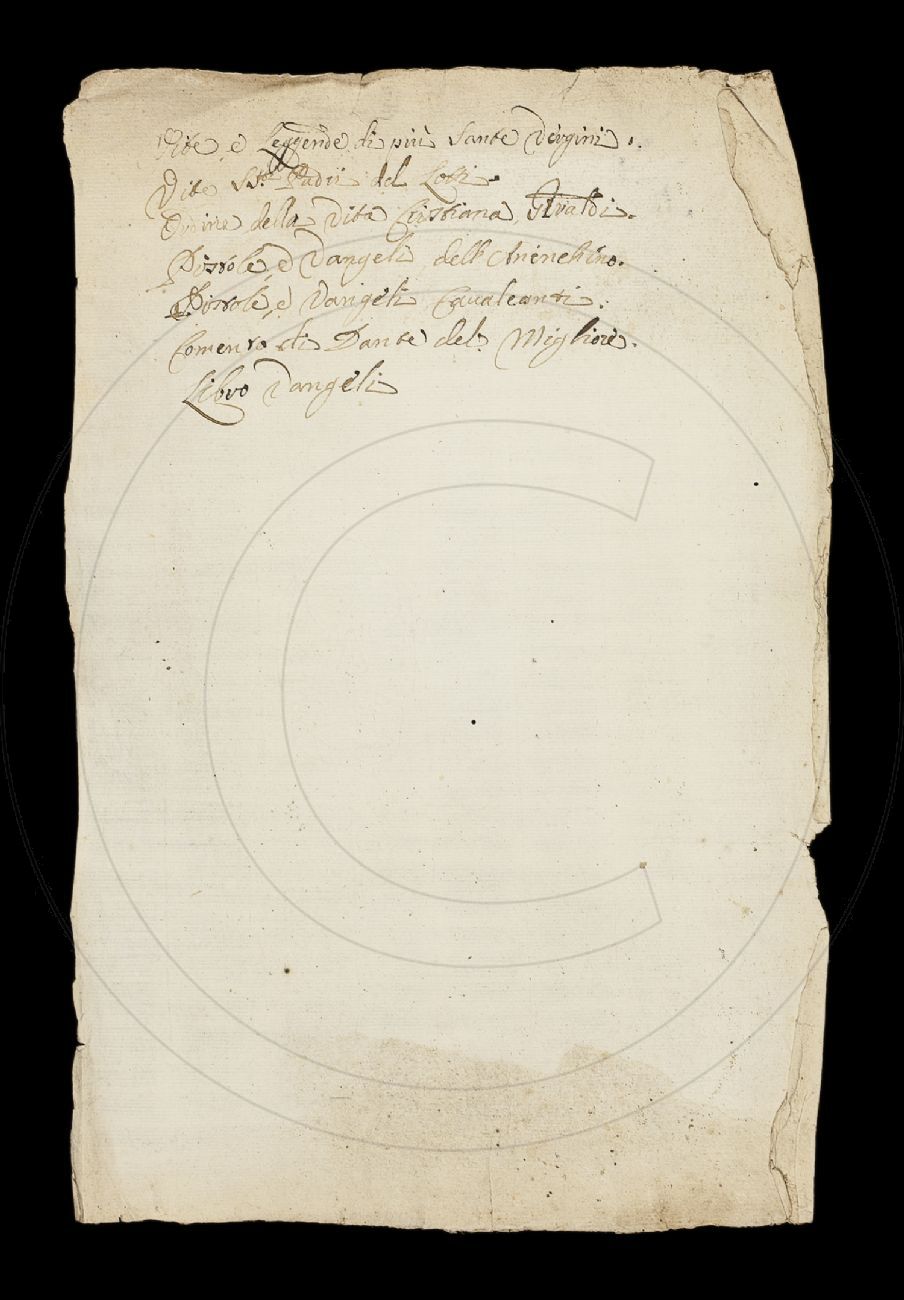 Vite, e Leggende di più Sante Vergini.
Vite S.ti Padri del Lotti.
Ordine della Vita Cristiana
Pistole, e Vangeli dell'
Pistole, e Vangeli Cavalcanti.
Comento di Dante del Migliore.
Libro Vangeli